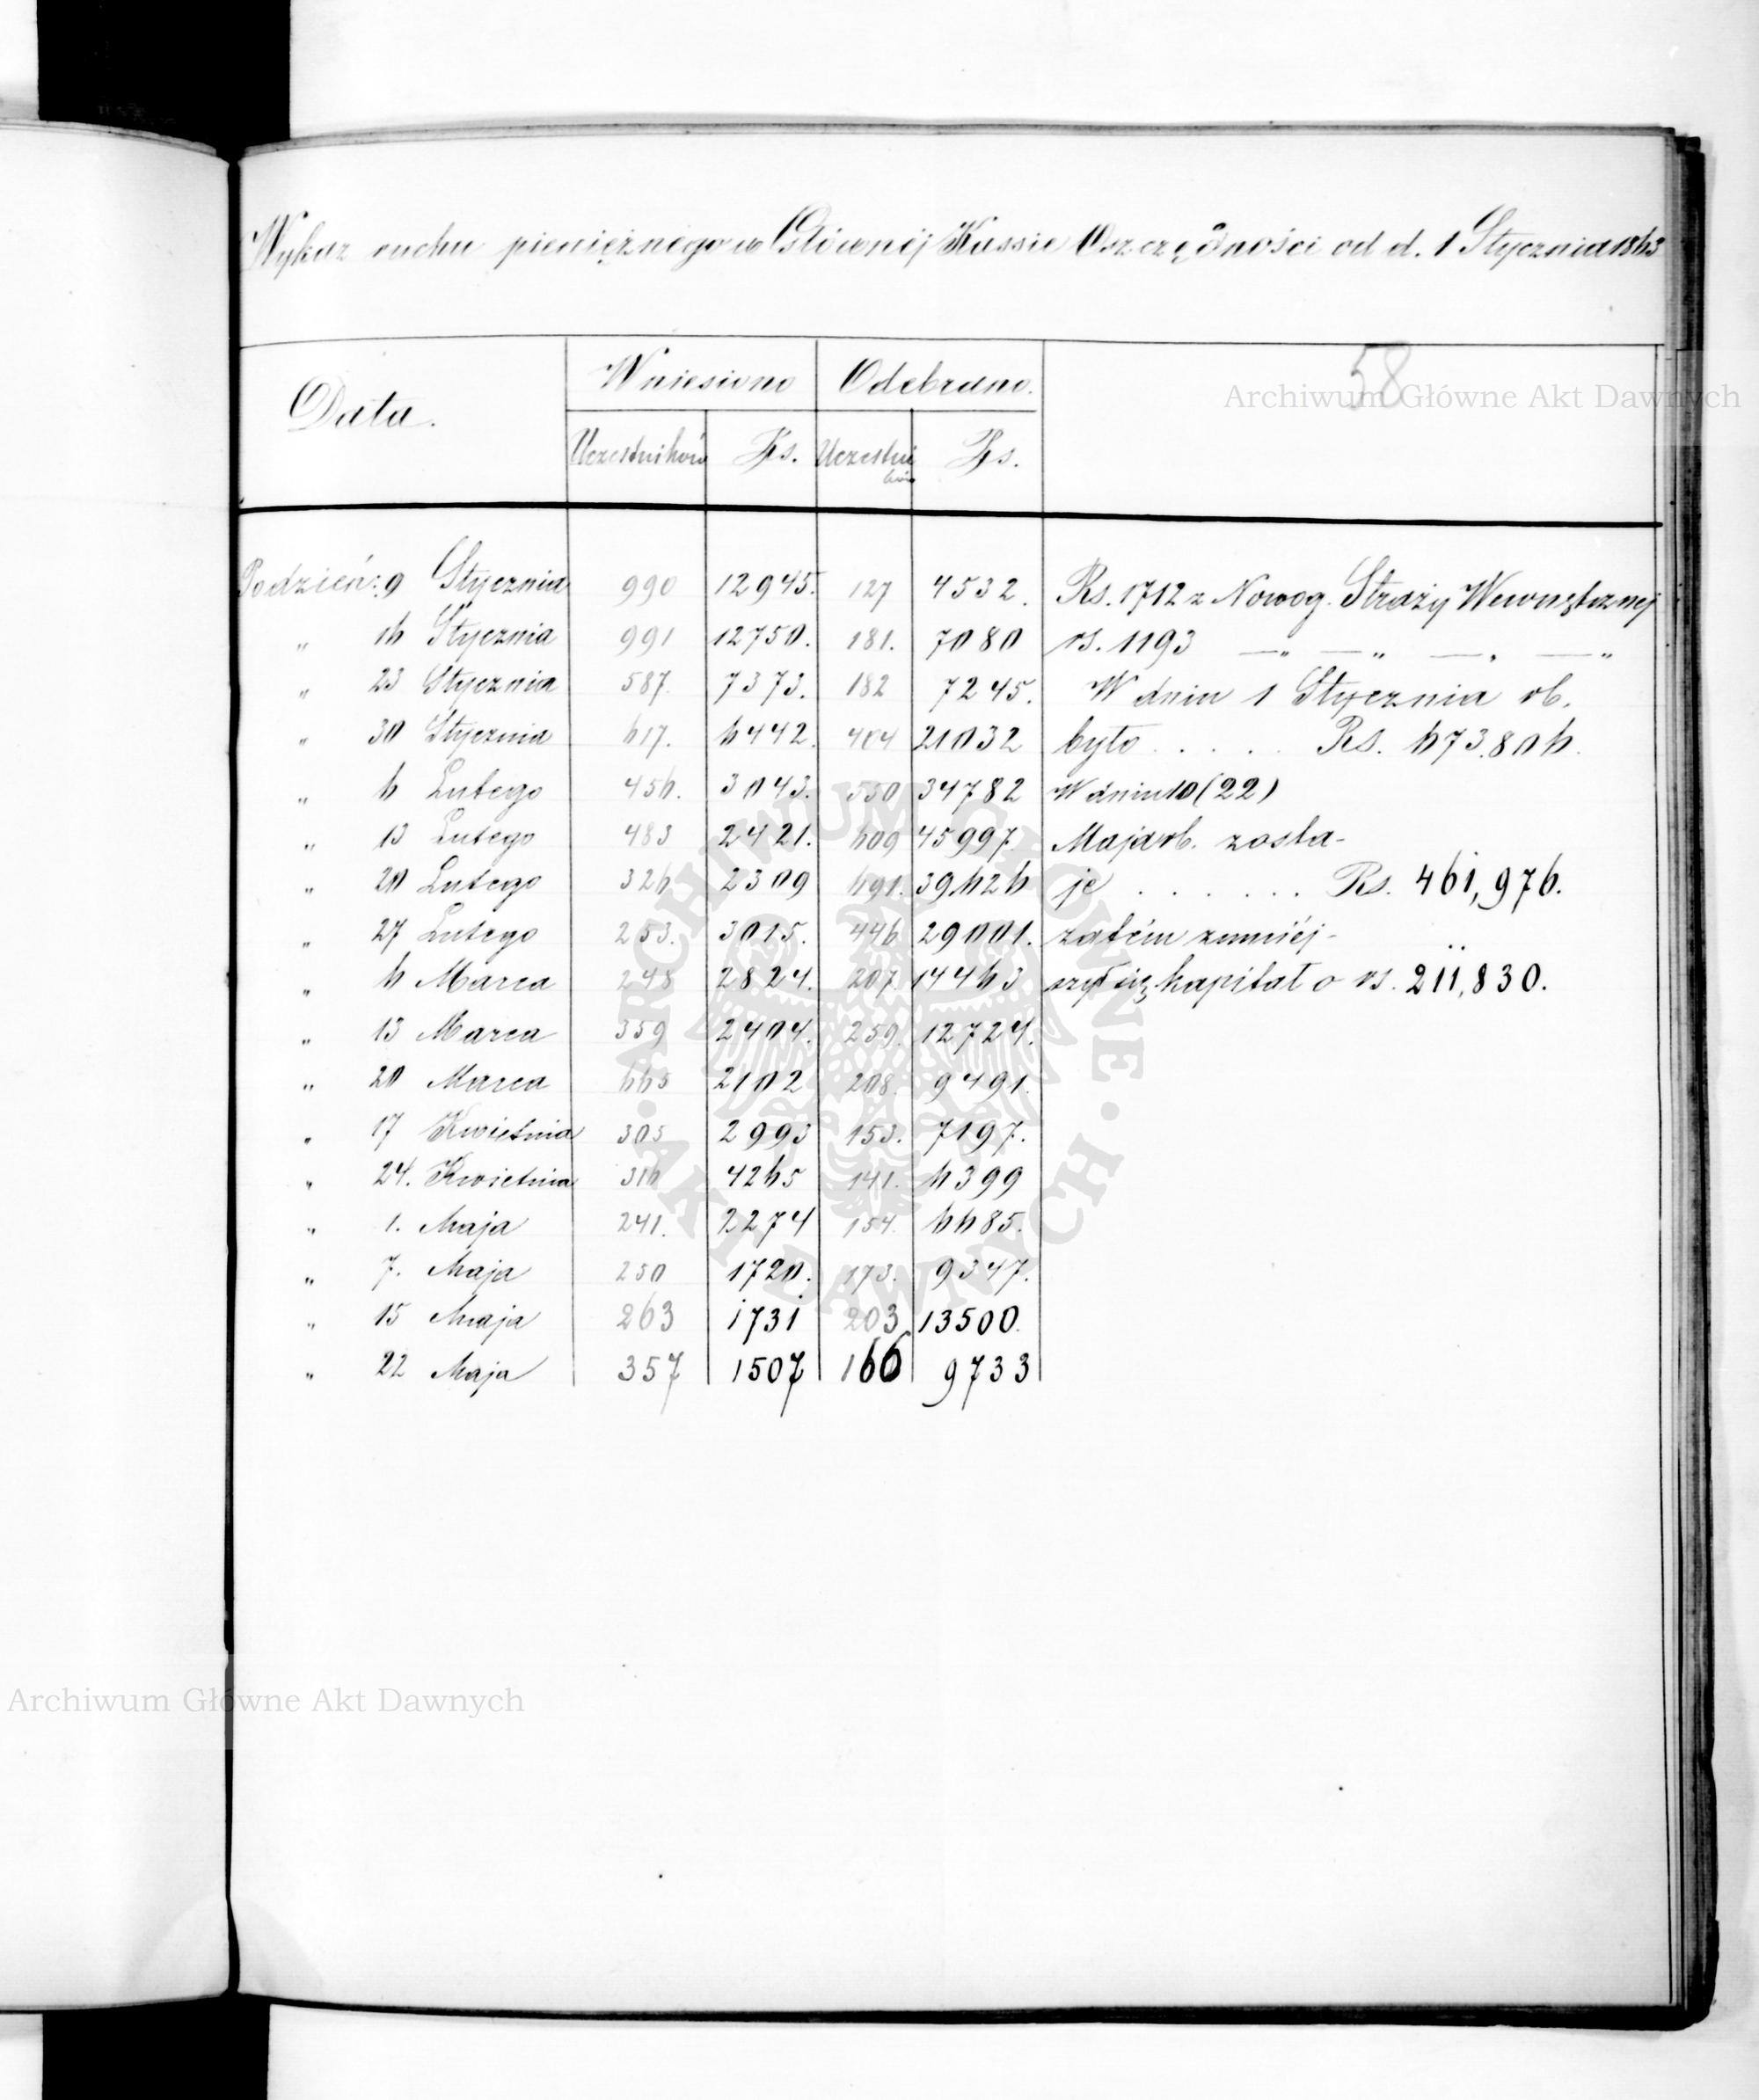 Wykaz ruchu pieniężnego w Głównéj Kassie Oszczędności od d. 1 Stycznia 1863
58
Archiwum Główne Akt Dawnych
Data. Wniesiono Odebrano.
Uczestników Rs. Uczestników Rs.
Podzień: 9 Stycznia 990 12945. 127 4532. Rs. 1712 z Nowog. Straży Wewnętrznej
„ 16 Stycznia 991 12750. 181. 7080 rs. 1193 —„ —„ —„ —„
„ 23 Stycznia 587. 7373. 182 7245. W dniu 1 Stycznia rb.
„ 30 Stycznia 617. 6442. 404 21032 było . . . . . Rs. 673.806.
„ 6 Lutego 456. 3043. 550 34782 W dniu 10 (22)
„ 13 Lutego 483 2421. 609 45997. Maja rb. zosta-
„ 20 Lutego 326 2309 691. 39626 je . . . . . . Rs. 461,976.
„ 27 Lutego 253. 3015. 446 29001. zatém zmniéj-
„ 6 Marca 248 2824. 207 14463 szył się kapitał o rs. 211,830.
„ 13 Marca 359 2404. 259. 12724.
„ 20 Marca 665 2102 208. 9491.
„ 17 Kwietnia 305 2993 153. 7197.
„ 24. Kwietnia 316 4265 141. 6399
„ 1. Maja 241. 2274 154. 6685.
„ 7. Maja 250 1720. 173. 9347.
„ 15 Maja 263 1731 203 13500.
„ 22 Maja 357 1507 166 9733
ARCHIWUM GŁÓWNE · AKT DAWNYCH ·
Archiwum Główne Akt Dawnych